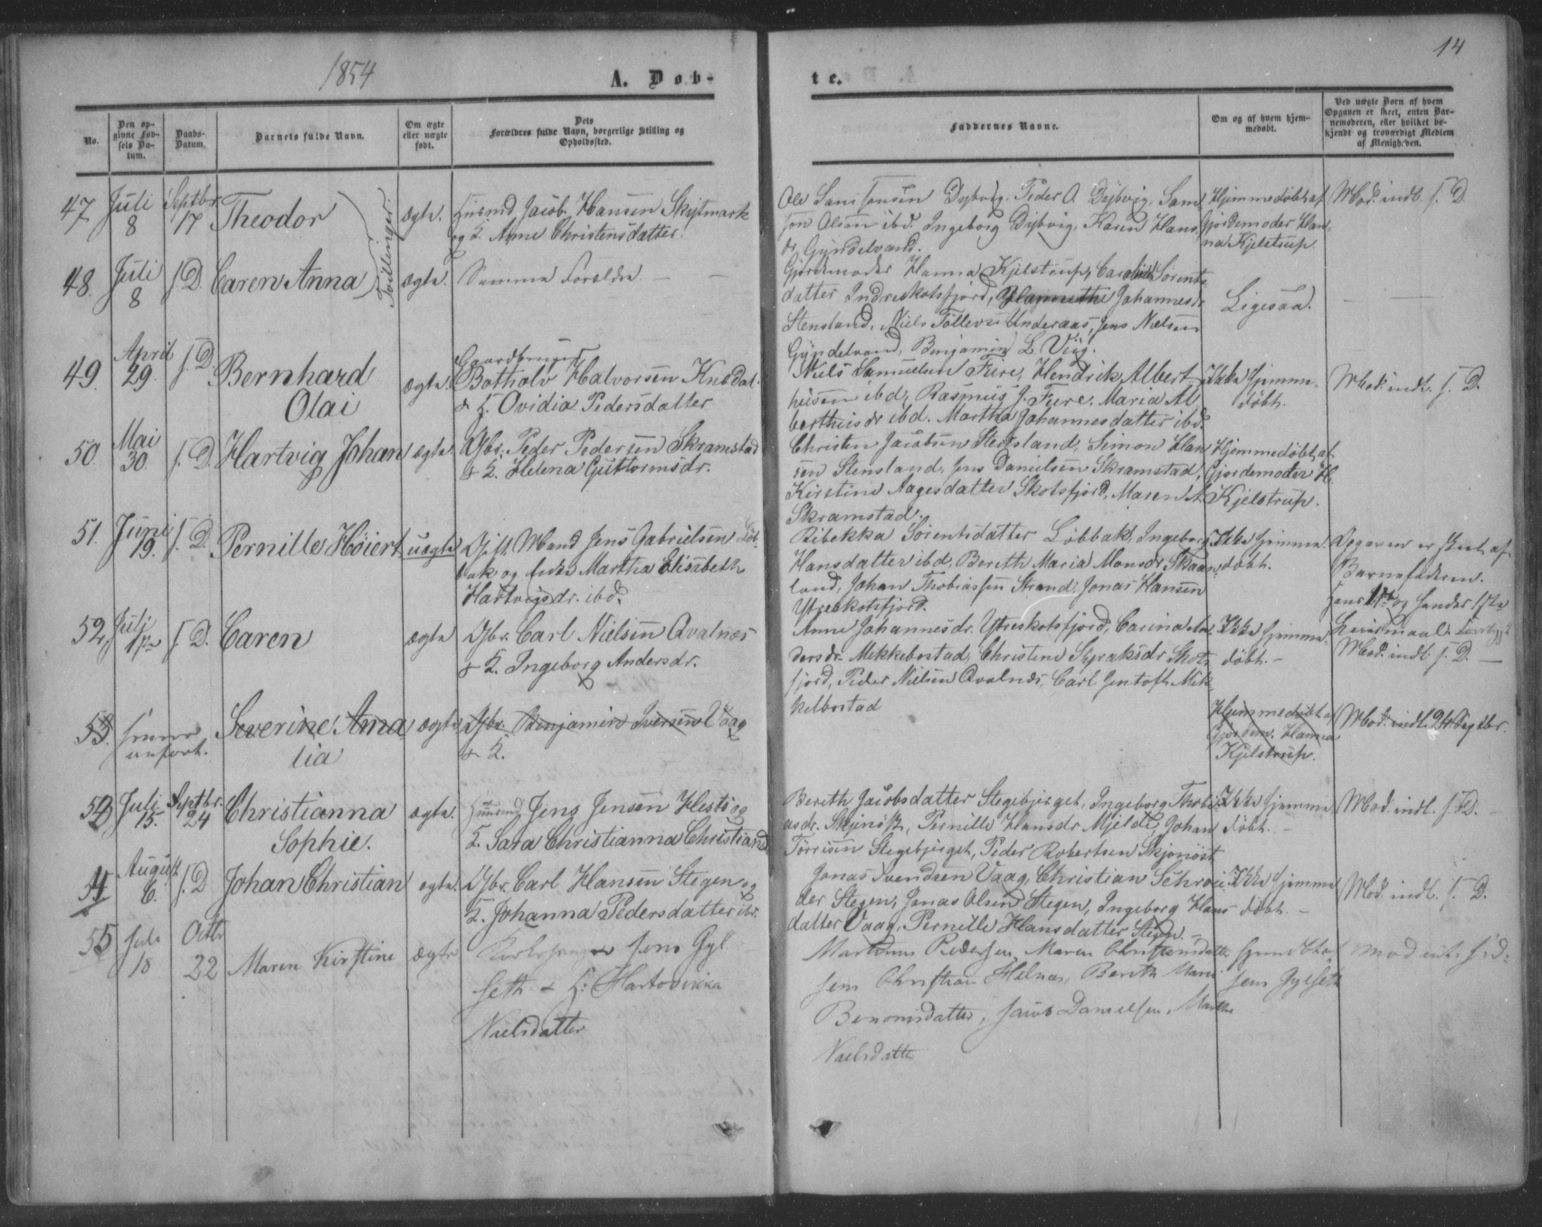 1854
A. Døb-
te.
14
No.
Den op-
givne Fød-
sels Da-
tum.
Daabs-
Datum.
Barnets fulde Navn.
Om ægte
eller uægte
født.
Dets
Forældres fulde Navn, borgerlige Stilling og
Opholdssted.
Faddernes Navne.
Om og af hvem hjem-
medøbt.
Ved uægte Børn af hvem
Opgaven er skeet, enten Bar-
nemoderen, eller hvilket be-
kjendt og troværdigt Medlem
af Menigheden.
47 Juli 8 Septbr 17 Theodor
Tvillinger.
ægte. Husmd Jacob Hansen Skytmark
og K. Anne Christensdatter.
Ole Dybvig. Peder A. Dybvig. Sam
son Olsen ibd. Ingeborg Dybvig, Karen Hans
dr. Gyndelvand.
Hjemmedøbt af
Gjordemoder Han
na Kjelstrup
Mod. indl. s. D.
48. Juli 8 s. D. Caren Anna ægte. Samme Forældre — —
Gjordemoder Hanna Kjelstrup, Sorents
datter Indreskotsfjord, Johannesdr
Stensland, Niels Underaas, Jens Nielsen
Gyndelvand, Benjamin L. Vig.
Ligesaa.
— —
49. April 29. s. D. Bernhard
Olai
ægte. Gaardbruger
Botholv Halvorsen
& K. Ovidia Pedersdatter
Niels Samuelsen Fire, Hendrik Albert
husen ibd, Rasmus J. Fiere, Maria Al
berthusdr ibd. Martha Johannesdatter ibd.
Ikke hjemme-
døbt.
Mod. indl. s. D.
50. Mai 30 s. D. Hartvig Johan ægte. Gbr. Peder Pedersen Skramstad
& K. Helena Guttormsdr.
Christen Jacobsen Stensland, Simon Han
sen Stensland, Jens Danielsen Skramstad,
Kirstine Aagesdatter Skotsfjord, Maren A.
Skramstad.
Hjemmedøbt af
Gjordemoder H.
Kjelstrup.
51. Juni 19. s. D. Pernille Høiert uægte Gift Mand Jens Gabrielsen Løb-
bak og Martha Elisabeth
Hartvigsdr. ibd.
Rebekka Sørentsdatter Løbbak, Ingeborg
Hansdatter ibd. Bereth Maria Monsdr Skaan
land, Johan Thobiassen Strand, Jonas Hansen
Ytreskotsfjord.
Ikke hjemme-
døbt.
Opgaven er skeet af
Barnefaderen.
Hans 1ste og hendes 1ste
Leiermaal.
52. Juli 1ste s. D. Caren ægte Gbr. Carl Nielsen Qvalnes
& K. Ingeborg Andersdr.
Anne Johannesdr. Ytreskotsfjord, Carina An
dersdr. Mikkelbostad, Christine Skots
fjord, Peder Nielsen Qvalnes, Carl Gustoft Mik
kelbostad
Ikke hjemme
døbt. —
Mod. indl. s. D. —
53. Severine Ama
lia
ægte Gbr. Benjamin Iversen Vaag
& K.
Hjemmedøbt af
Gjordem. Hanna
Kjelstrup.
Mod. indl. 24 Septbr.
Juli 15. Septbr. 24 Christianna
Sophie.
ægte. Husmd Jens Jensen Hest og
K. Sara Christianna Christiansd
Bereth Jacobsdatter Stegebjerget, Ingeborg
Pernille Hansdr Mjelde, Johan
Tørrisen Stegebjerget, Peder Robertsen
Ikke hjemme
døbt. —
Mod. indl. s. D. —
54 August 6. s. D. Johan Christian ægte. Gbr. Carl Hansen Stegen og
K. Johanna Pedersdatter ibd.
Jonas Svendsen Vaag, Christian Schrøi
der Stegen, Jonas Olsen Stegen, Ingeborg Hans
datter Vaag, Pernille Hansdatter Stegen —
Ikke hjemme
døbt. —
Mod. indl. s. D.
55 Juli 18 Octbr 22 Maren Kirstine ægte Kirkesanger Jens Gyl
seth & K: Hartvikka
Nielsdatter
Martinus Pedersen, Maren Christensdatter
Jens Christian Helnes, Bereth Marie
Benonisdatter, Jacob Danielsen, Marthe
Nielsdatte
Jens Gylseth
Mod. int. s. D.